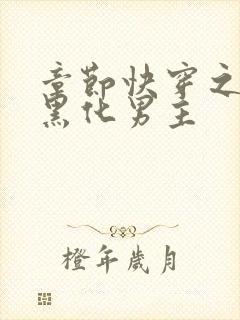 章节快穿之
黑化男主
橙年歲月